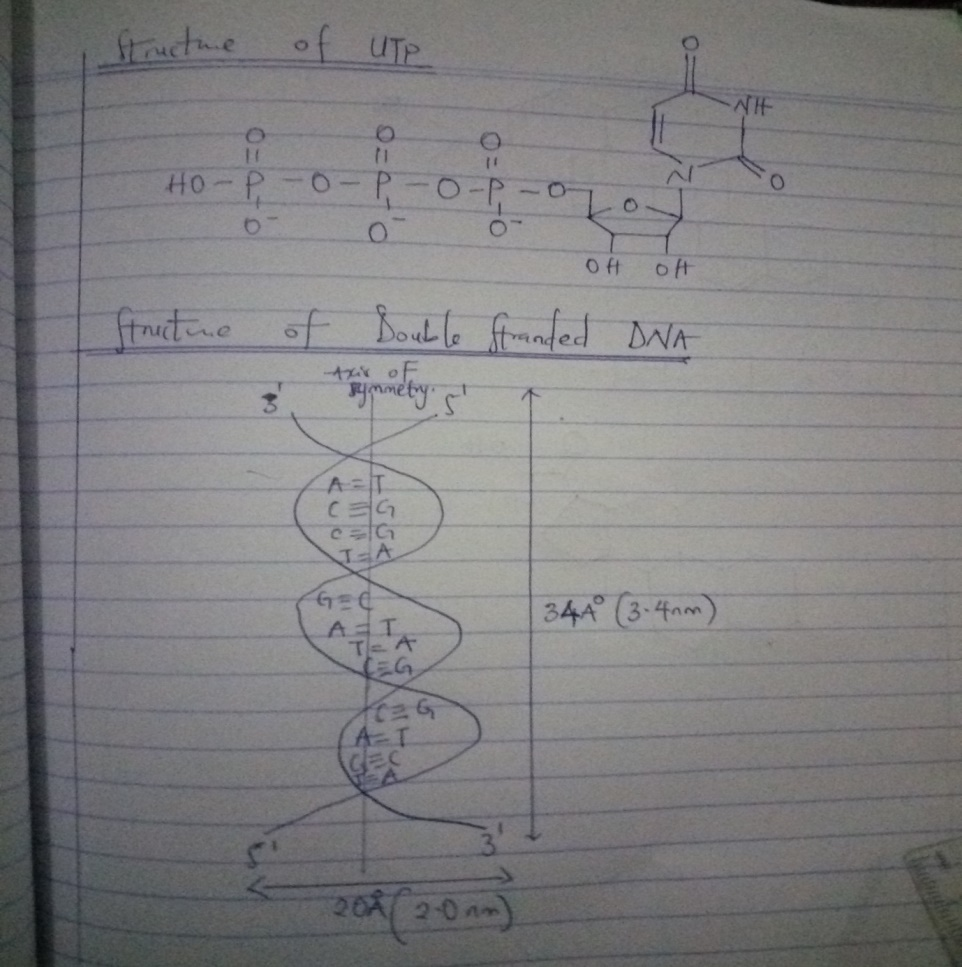 Structure of UTP
O
O O O NH
HO-P-O-P-O-P-O O N O
O⁻ O⁻ O⁻
OH OH
Structure of Double Stranded DNA
Axis of
symmetry.
3' 5'
A=T
C≡G
C≡G
T=A
G≡C
34A° (3.4nm)
A=T
T=A
C≡G
C≡G
A=T
G≡C
A
5' 3'
20Å (2.0nm)